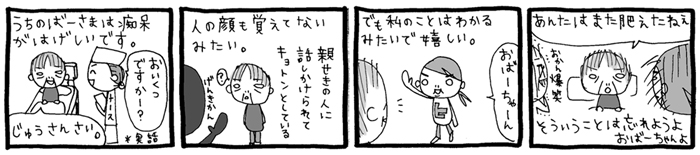 うちのばーさまは痴呆
がはげしいです。
おいくつ
ですかー?
ナース
じゅうさんさい。
*実話
人の顔も覚えてない
みたい。
親せきの人に
話しかけられて
キョトンとしている
?
げんきかん
でも私のことはわかる
みたいで嬉しい。
おばーちゃーん
あんたはまた肥えたねぇ
おかん爆笑
そういうことは忘れようよ
おばーちゃんよ